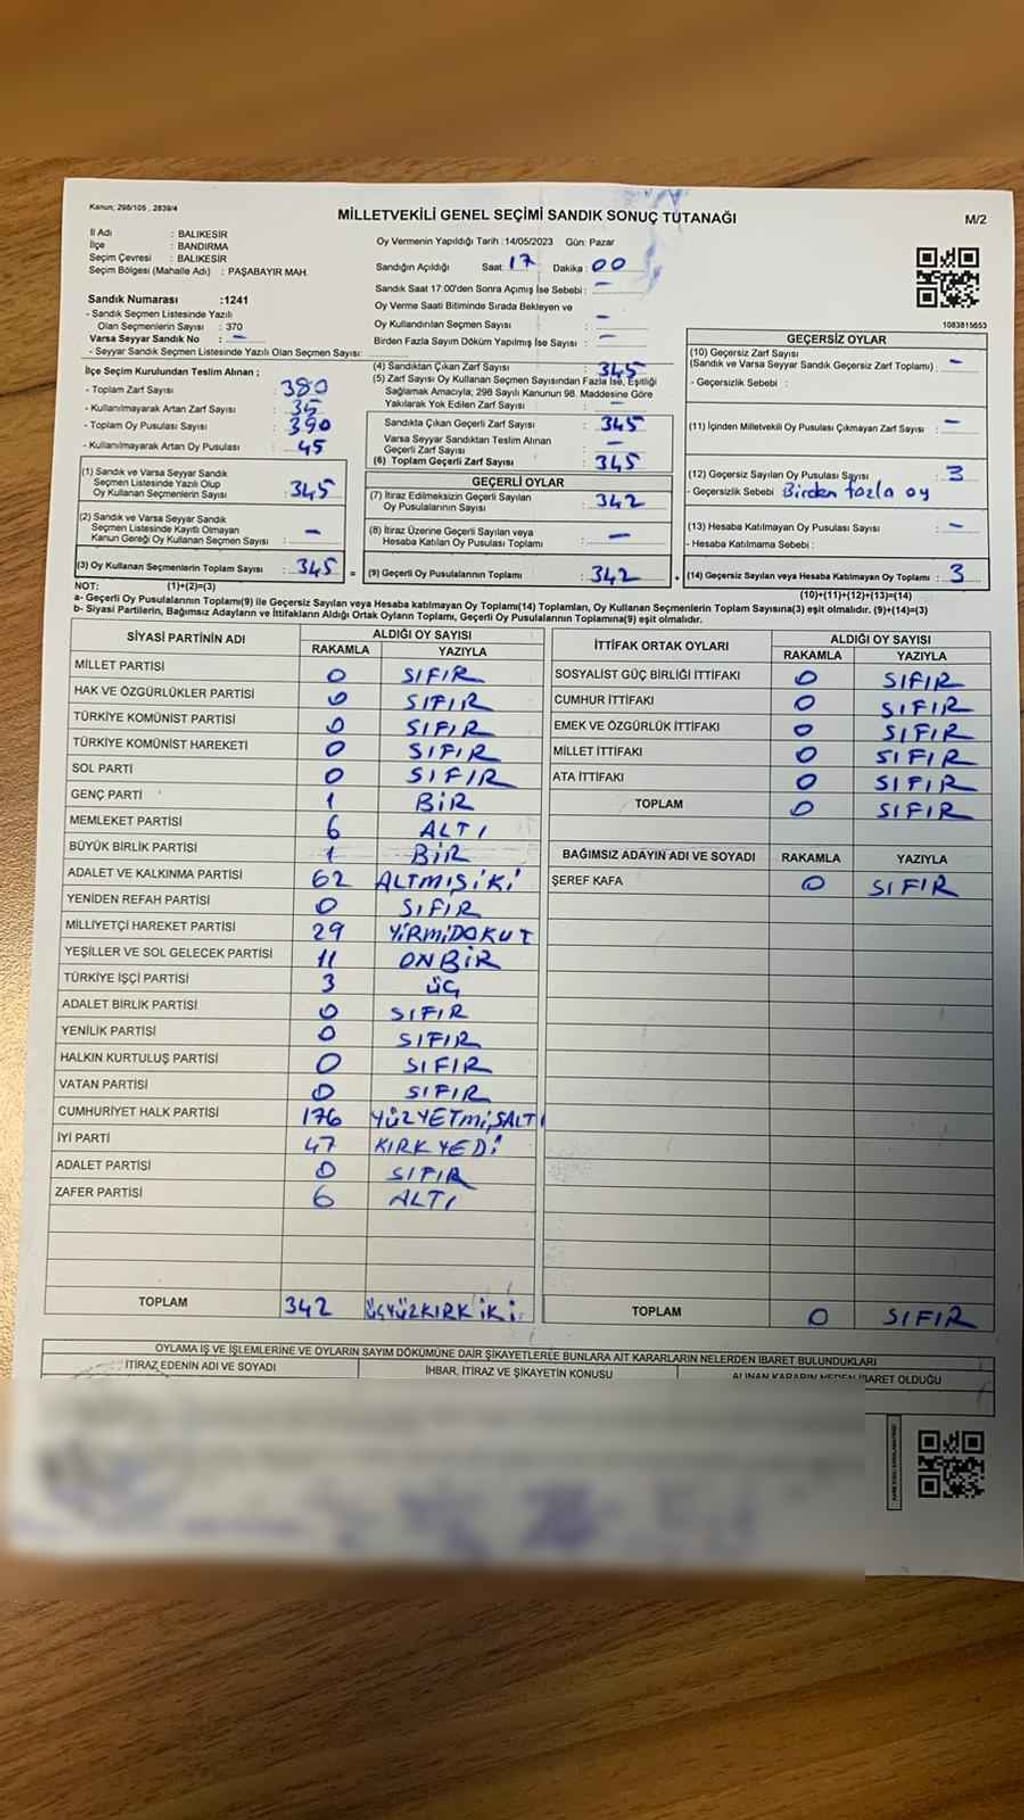 Kanun; 298/105 , 2839/4
MİLLETVEKİLİ GENEL SEÇİMİ SANDIK SONUÇ TUTANAĞI
M/2
İl Adı : BALIKESİR
İlçe : BANDIRMA
Seçim Çevresi : BALIKESİR
Seçim Bölgesi (Mahalle Adı) : PAŞABAYIR MAH.
Sandık Numarası :1241
- Sandık Seçmen Listesinde Yazılı
Olan Seçmenlerin Sayısı : 370
Varsa Seyyar Sandık No : -
- Seyyar Sandık Seçmen Listesinde Yazılı Olan Seçmen Sayısı:
Oy Vermenin Yapıldığı Tarih :14/05/2023 Gün: Pazar
Sandığın Açıldığı Saat : 17 Dakika : 00
Sandık Saat 17:00'den Sonra Açımış İse Sebebi : -
Oy Verme Saati Bitiminde Sırada Bekleyen ve
Oy Kullandırılan Seçmen Sayısı : -
Birden Fazla Sayım Döküm Yapılmış İse Sayısı : -
1083815653
İlçe Seçim Kurulundan Teslim Alınan ;
- Toplam Zarf Sayısı : 380
- Kullanılmayarak Artan Zarf Sayısı : 35
- Toplam Oy Pusulası Sayısı : 390
- Kullanılmayarak Artan Oy Pusulası : 45
(1) Sandık ve Varsa Seyyar Sandık
Seçmen Listesinde Yazılı Olup
Oy Kullanan Seçmenlerin Sayısı : 345
(2) Sandık ve Varsa Seyyar Sandık
Seçmen Listesinde Kayıtlı Olmayan
Kanun Gereği Oy Kullanan Seçmen Sayısı : -
(3) Oy Kullanan Seçmenlerin Toplam Sayısı : 345
(4) Sandıktan Çıkan Zarf Sayısı : 345
(5) Zarf Sayısı Oy Kullanan Seçmen Sayısından Fazla İse, Eşitliği
Sağlamak Amacıyla; 298 Sayılı Kanunun 98. Maddesine Göre
Yakılarak Yok Edilen Zarf Sayısı : -
Sandıkta Çıkan Geçerli Zarf Sayısı : 345
Varsa Seyyar Sandıktan Teslim Alınan
Geçerli Zarf Sayısı : -
(6) Toplam Geçerli Zarf Sayısı : 345
GEÇERLİ OYLAR
(7) İtiraz Edilmeksizin Geçerli Sayılan
Oy Pusulalarının Sayısı : 342
(8) İtiraz Üzerine Geçerli Sayılan veya
Hesaba Katılan Oy Pusulası Toplamı : -
= (9) Geçerli Oy Pusulalarının Toplamı : 342
GEÇERSİZ OYLAR
(10) Geçersiz Zarf Sayısı
(Sandık ve Varsa Seyyar Sandık Geçersiz Zarf Toplamı) : -
- Geçersizlik Sebebi :
(11) İçinden Milletvekili Oy Pusulası Çıkmayan Zarf Sayısı : -
(12) Geçersiz Sayılan Oy Pusulası Sayısı : 3
- Geçersizlik Sebebi : Birden fazla oy
(13) Hesaba Katılmayan Oy Pusulası Sayısı : -
- Hesaba Katılmama Sebebi :
+ (14) Geçersiz Sayılan veya Hesaba Katılmayan Oy Toplamı : 3
NOT: (1)+(2)=(3)
(10)+(11)+(12)+(13)=(14)
a- Geçerli Oy Pusulalarının Toplamı(9) ile Geçersiz Sayılan veya Hesaba katılmayan Oy Toplamı(14) Toplamları, Oy Kullanan Seçmenlerin Toplam Sayısına(3) eşit olmalıdır. (9)+(14)=(3)
b- Siyasi Partilerin, Bağımsız Adayların ve İttifakların Aldığı Ortak Oyların Toplamı, Geçerli Oy Pusulalarının Toplamına(9) eşit olmalıdır.
SİYASİ PARTİNİN ADI ALDIĞI OY SAYISI
RAKAMLA YAZIYLA
MİLLET PARTİSİ 0 SIFIR
HAK VE ÖZGÜRLÜKLER PARTİSİ 0 SIFIR
TÜRKİYE KOMÜNİST PARTİSİ 0 SIFIR
TÜRKİYE KOMÜNİST HAREKETİ 0 SIFIR
SOL PARTİ 0 SIFIR
GENÇ PARTİ 1 BİR
MEMLEKET PARTİSİ 6 ALTI
BÜYÜK BİRLİK PARTİSİ 1 BİR
ADALET VE KALKINMA PARTİSİ 62 ALTMIŞİKİ
YENİDEN REFAH PARTİSİ 0 SIFIR
MİLLİYETÇİ HAREKET PARTİSİ 29 YİRMİDOKUZ
YEŞİLLER VE SOL GELECEK PARTİSİ 11 ONBİR
TÜRKİYE İŞÇİ PARTİSİ 3 ÜÇ
ADALET BİRLİK PARTİSİ 0 SIFIR
YENİLİK PARTİSİ 0 SIFIR
HALKIN KURTULUŞ PARTİSİ 0 SIFIR
VATAN PARTİSİ 0 SIFIR
CUMHURİYET HALK PARTİSİ 176 YÜZYETMİŞALTI
İYİ PARTİ 47 KIRKYEDİ
ADALET PARTİSİ 0 SIFIR
ZAFER PARTİSİ 6 ALTI
TOPLAM 342 ÜÇYÜZKIRKİKİ
İTTİFAK ORTAK OYLARI ALDIĞI OY SAYISI
RAKAMLA YAZIYLA
SOSYALİST GÜÇ BİRLİĞİ İTTİFAKI 0 SIFIR
CUMHUR İTTİFAKI 0 SIFIR
EMEK VE ÖZGÜRLÜK İTTİFAKI 0 SIFIR
MİLLET İTTİFAKI 0 SIFIR
ATA İTTİFAKI 0 SIFIR
TOPLAM 0 SIFIR
BAĞIMSIZ ADAYIN ADI VE SOYADI RAKAMLA YAZIYLA
ŞEREF KAFA 0 SIFIR
TOPLAM 0 SIFIR
OYLAMA İŞ VE İŞLEMLERİNE VE OYLARIN SAYIM DÖKÜMÜNE DAİR ŞİKAYETLERLE BUNLARA AİT KARARLARIN NELERDEN İBARET BULUNDUKLARI
İTİRAZ EDENİN ADI VE SOYADI İHBAR, İTİRAZ VE ŞİKAYETİN KONUSU ALINAN KARARIN NEDEN İBARET OLDUĞU